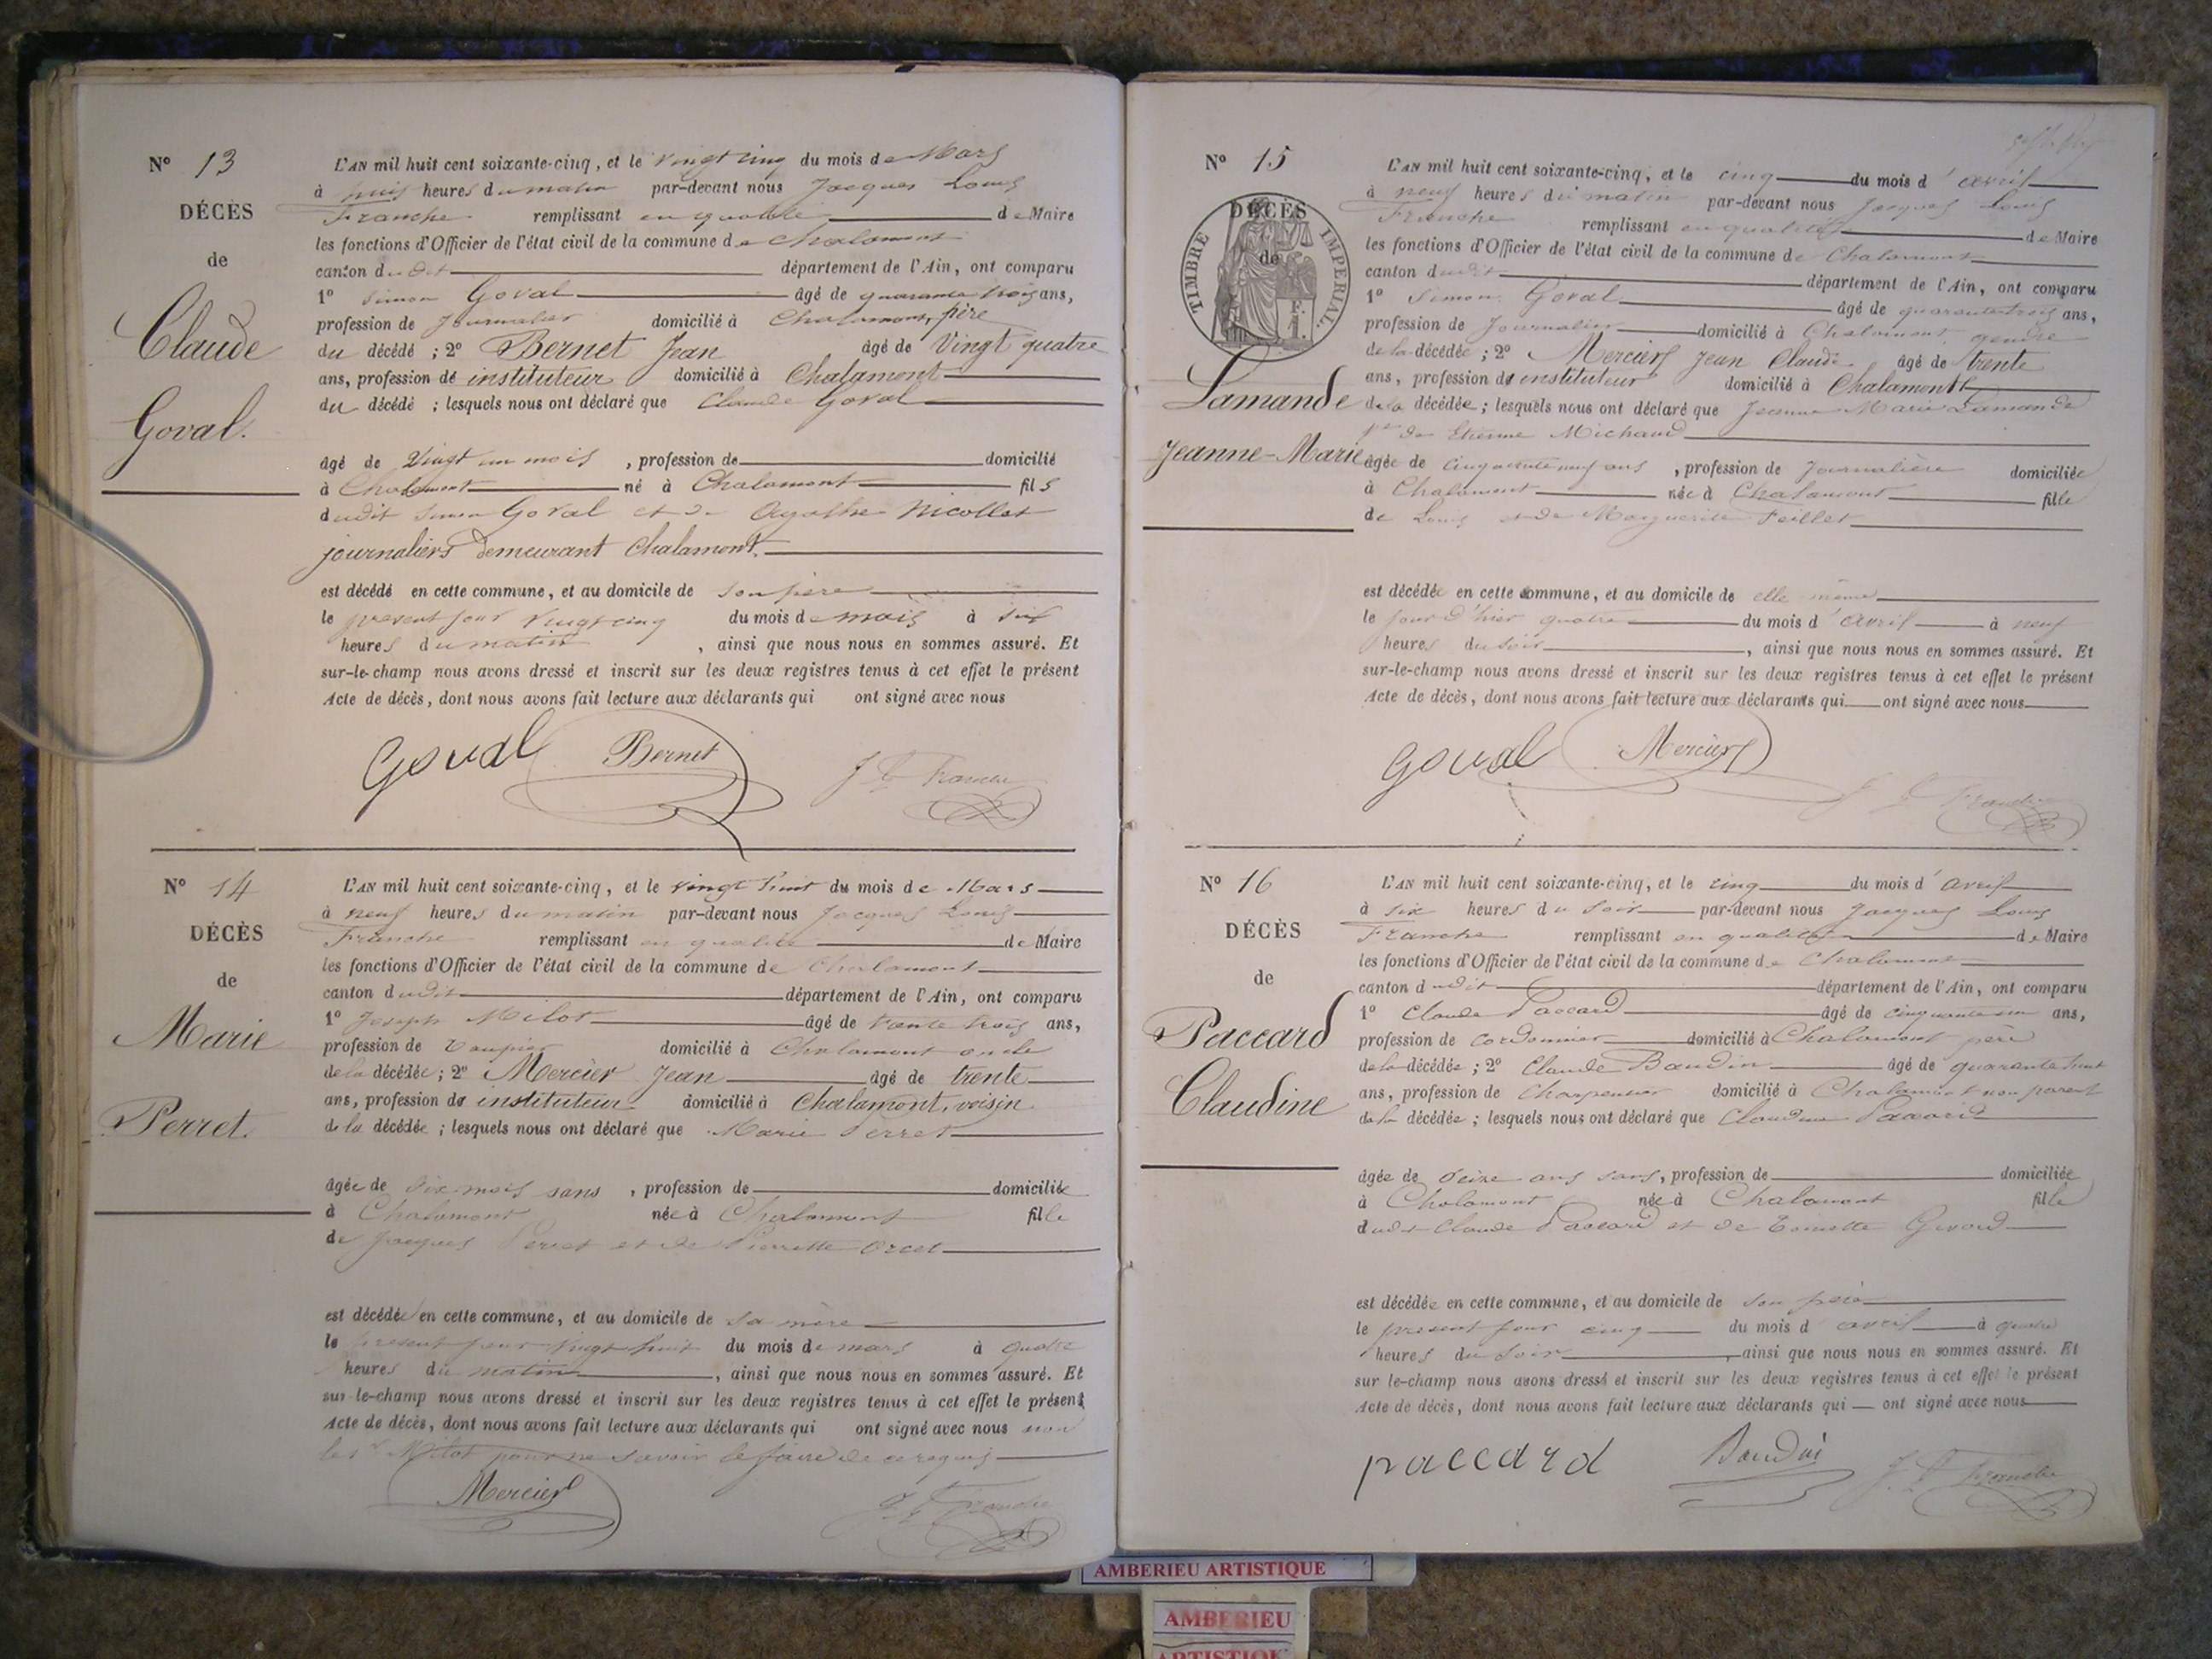 N° 13
DÉCÈS
de
Claude
Goval.
L'AN mil huit cent soixante-cinq, et le vingt cinq du mois de Mars
à huit heures du matin par-devant nous Jacques Louis
Franche remplissant en qualité de Maire
les fonctions d'Officier de l'état civil de la commune de Chalamont
canton dudit département de l'Ain, ont comparu
1° Simon Goval âgé de quarante trois ans,
profession de Journalier domicilié à Chalamont, père
du décédé ; 2° Bernet Jean âgé de Vingt quatre
ans, profession de instituteur domicilié à Chalamont
du décédé ; lesquels nous ont déclaré que Claude Goval
âgé de Vingt un mois , profession de domicilié
à Chalamont né à Chalamont fils
dudit Simon Goval et de Agathe Nicollet
journaliers demeurant Chalamont.
est décédé en cette commune, et au domicile de son père
le présent jour vingt cinq du mois de mars à six
heures du matin , ainsi que nous nous en sommes assuré. Et
sur-le-champ nous avons dressé et inscrit sur les deux registres tenus à cet effet le présent
Acte de décès, dont nous avons fait lecture aux déclarants qui ont signé avec nous
Goval Bernet J L Franche
N° 14
DÉCÈS
de
Marie
Perret.
L'AN mil huit cent soixante-cinq, et le vingt huit du mois de Mars
à neuf heures du matin par-devant nous Jacques Louis
Franche remplissant en qualité de Maire
les fonctions d'Officier de l'état civil de la commune de Chalamont
canton dudit département de l'Ain, ont comparu
1° Joseph Milot âgé de trente trois ans,
profession de domicilié à Chalamont oncle
de la décédée ; 2° Mercier Jean âgé de trente
ans, profession de instituteur domicilié à Chalamont, voisin
de la décédée ; lesquels nous ont déclaré que Marie Perret
âgée de six mois sans , profession de domiciliée
à Chalamont née à Chalamont fille
de Jacques Perret et de Pierrette Orcet
est décédée en cette commune, et au domicile de sa mère
le présent jour vingt huit du mois de mars à quatre
heures du matin , ainsi que nous nous en sommes assuré. Et
sur-le-champ nous avons dressé et inscrit sur les deux registres tenus à cet effet le présent
Acte de décès, dont nous avons fait lecture aux déclarants qui ont signé avec nous non
le sr Milot pour ne savoir le faire de ce requis
Mercier J L Franche
N° 15
DÉCÈS
de
TIMBRE IMPERIAL.
1 F.
Lamande
Jeanne-Marie
L'AN mil huit cent soixante-cinq, et le cinq du mois d'avril
à neuf heures du matin par-devant nous Jacques Louis
Franche remplissant en qualité de Maire
les fonctions d'Officier de l'état civil de la commune de Chalamont
canton dudit département de l'Ain, ont comparu
1° Simon Goval âgé de quarante trois ans,
profession de Journalier domicilié à Chalamont, gendre
de la décédée ; 2° Mercier Jean Claude âgé de trente
ans, profession de instituteur domicilié à Chalamont
de la décédée ; lesquels nous ont déclaré que Jeanne Marie Lamande
de Etienne Michaud
âgée de cinquante neuf ans , profession de Journalière domiciliée
à Chalamont née à Chalamont fille
de Louis et de Marguerite Feillet
est décédée en cette commune, et au domicile de elle même
le jour d'hier quatre du mois d'avril à neuf
heures du soir , ainsi que nous nous en sommes assuré. Et
sur-le-champ nous avons dressé et inscrit sur les deux registres tenus à cet effet le présent
Acte de décès, dont nous avons fait lecture aux déclarants qui ont signé avec nous
Goval Mercier J L Franche
N° 16
DÉCÈS
de
Paccard
Claudine
L'AN mil huit cent soixante-cinq, et le cinq du mois d'avril
à six heures du soir par-devant nous Jacques Louis
Franche remplissant en qualité de Maire
les fonctions d'Officier de l'état civil de la commune de Chalamont
canton dudit département de l'Ain, ont comparu
1° Claude Paccard âgé de cinquante un ans,
profession de cordonnier domicilié à Chalamont père
de la décédée ; 2° Claude Baudin âgé de quarante huit
ans, profession de Charpentier domicilié à Chalamont non parent
de la décédée ; lesquels nous ont déclaré que Claudine Paccard
âgée de seize ans sans, profession de domiciliée
à Chalamont née à Chalamont fille
dudit Claude Paccard et de Girard
est décédée en cette commune, et au domicile de son père
le présent jour cinq du mois d'avril à quatre
heures du soir , ainsi que nous nous en sommes assuré. Et
sur le-champ nous avons dressé et inscrit sur les deux registres tenus à cet effet le présent
Acte de décès, dont nous avons fait lecture aux déclarants qui ont signé avec nous
paccard Baudin J L Franche
AMBERIEU ARTISTIQUE
AMBERIEU